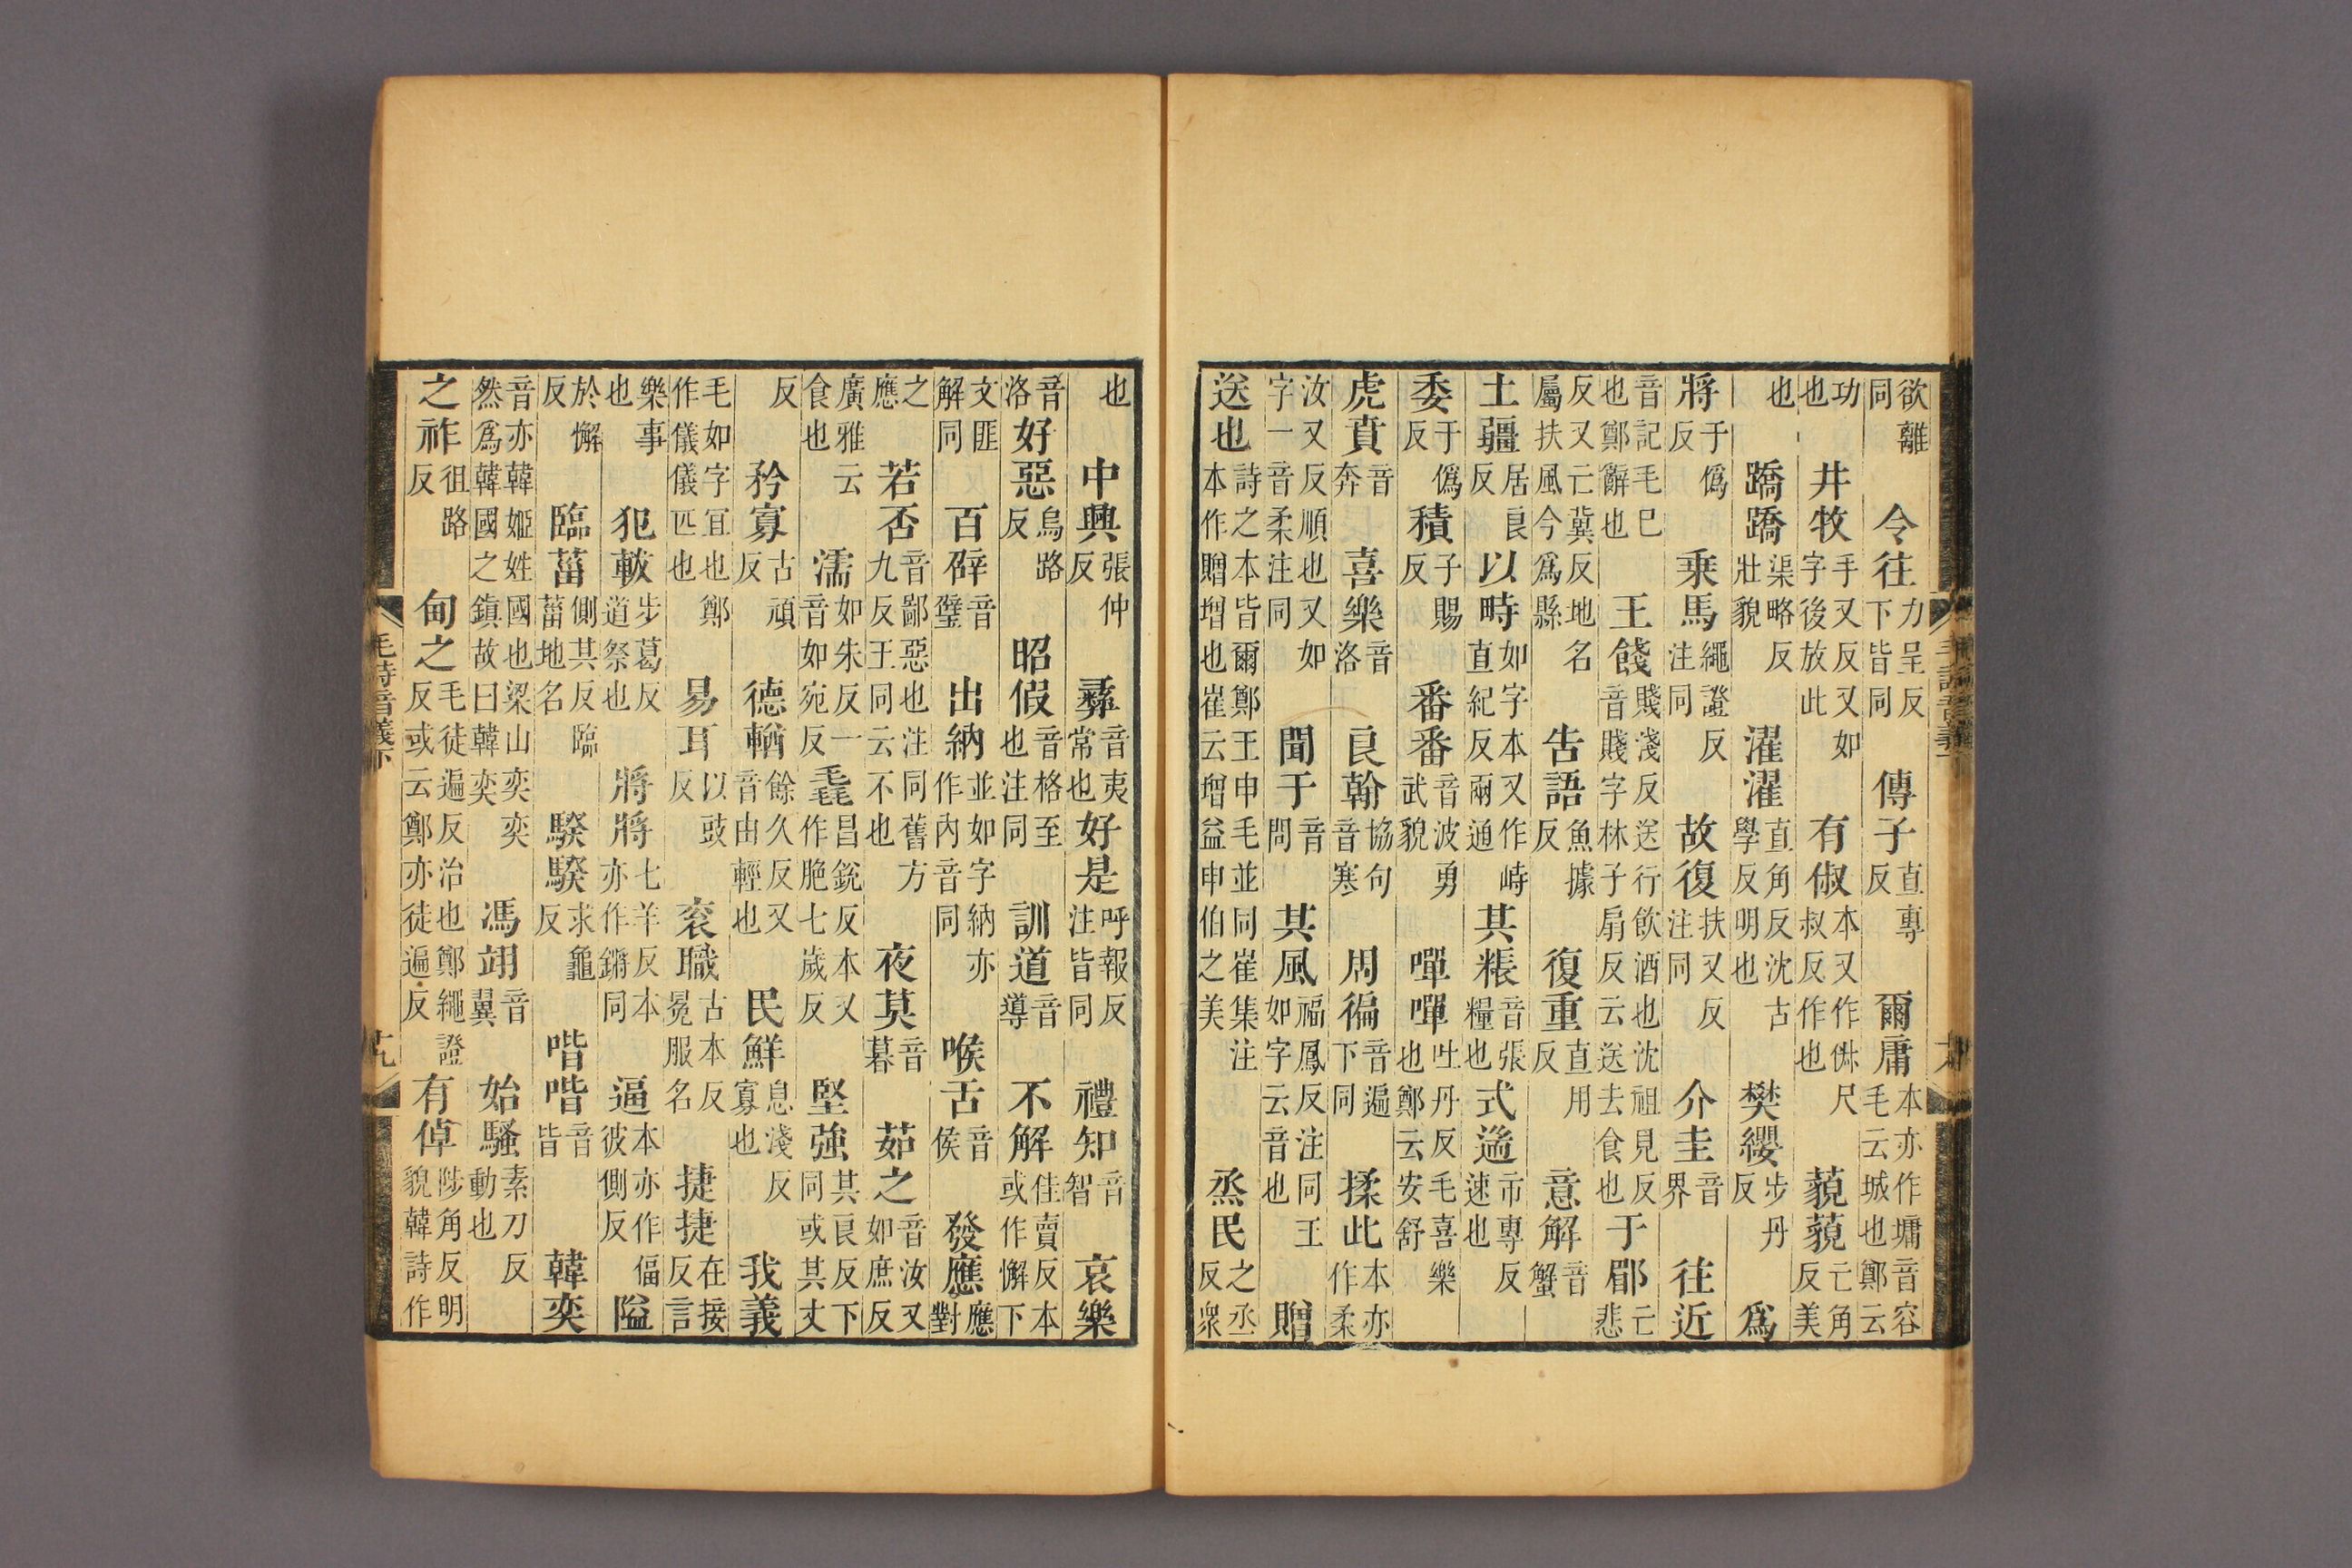 欲離同令往力呈反下皆同傳子直專反爾庸本亦作墉音容毛云城也鄭云
功也井牧手又反又如字後放此有俶本又作㑐尺叔反作也藐藐亡角反美
也蹻蹻渠略反壯貌濯濯直角反沈古學反明也樊纓步丹反爲
將于僞反乗馬繩證反注同故復扶又反注同介圭音界往近
音記毛巳也鄭辭也王餞賤淺反送行飲酒也沈祖見反音賤字林子扇反云送去食也于郿亡悲
反又亡冀反地名屬扶風今爲縣告語魚據反復重直用反意解音蟹
土疆居良反以畤如字本又作峙直紀反兩通其粻音張糧也式遄市專反速也
委于僞反積子賜反番番音波勇武貌嘽嘽吐丹反毛喜樂也鄭云安舒
虎賁音奔喜樂音洛良翰協句音寒周徧音遍下同揉此本亦作柔
汝又反順也又如字一音柔注同聞于音問其風福鳳反注同王如字云音也贈
送也詩之本皆爾鄭王申毛並同崔集注本作贈增也崔云增益申伯之美烝民之丞反衆
也中興張仲反彝音夷常也好是呼報反注皆同禮知音智哀樂
音洛好惡烏路反昭假音格至也注同訓道音導不解佳賣反本或作懈下
文匪解同百辟音璧出納並如字納亦作內音同喉舌音侯發應應對
之應若否音鄙惡也注同舊方九反王同云不也夜莫音暮茹之音汝又如庶反
廣雅云食也濡如朱反一音如宛反毳昌銳反本又作脃七歲反堅強其良反下同或其丈
反矜寡古頑反德輶餘久反又音由輕也民鮮息淺反寡也我義
毛如字冝也鄭作儀儀匹也易耳以豉反衮職古本反冕服名捷捷在接反言
樂事也犯軷步葛反道祭也將將七羊反本亦作鏘同逼本亦作偪彼側反隘
於懈反臨菑側其反臨菑地名騤騤求龜反喈喈音皆韓奕
音亦韓姬姓國也梁山奕奕然爲韓國之鎮故曰韓奕馮翊音翼始騷素刀反動也
之祚徂路反甸之毛徒遍反治也鄭繩證反或云鄭亦徒遍反有倬陟角反明貌韓詩作
毛詩音義下